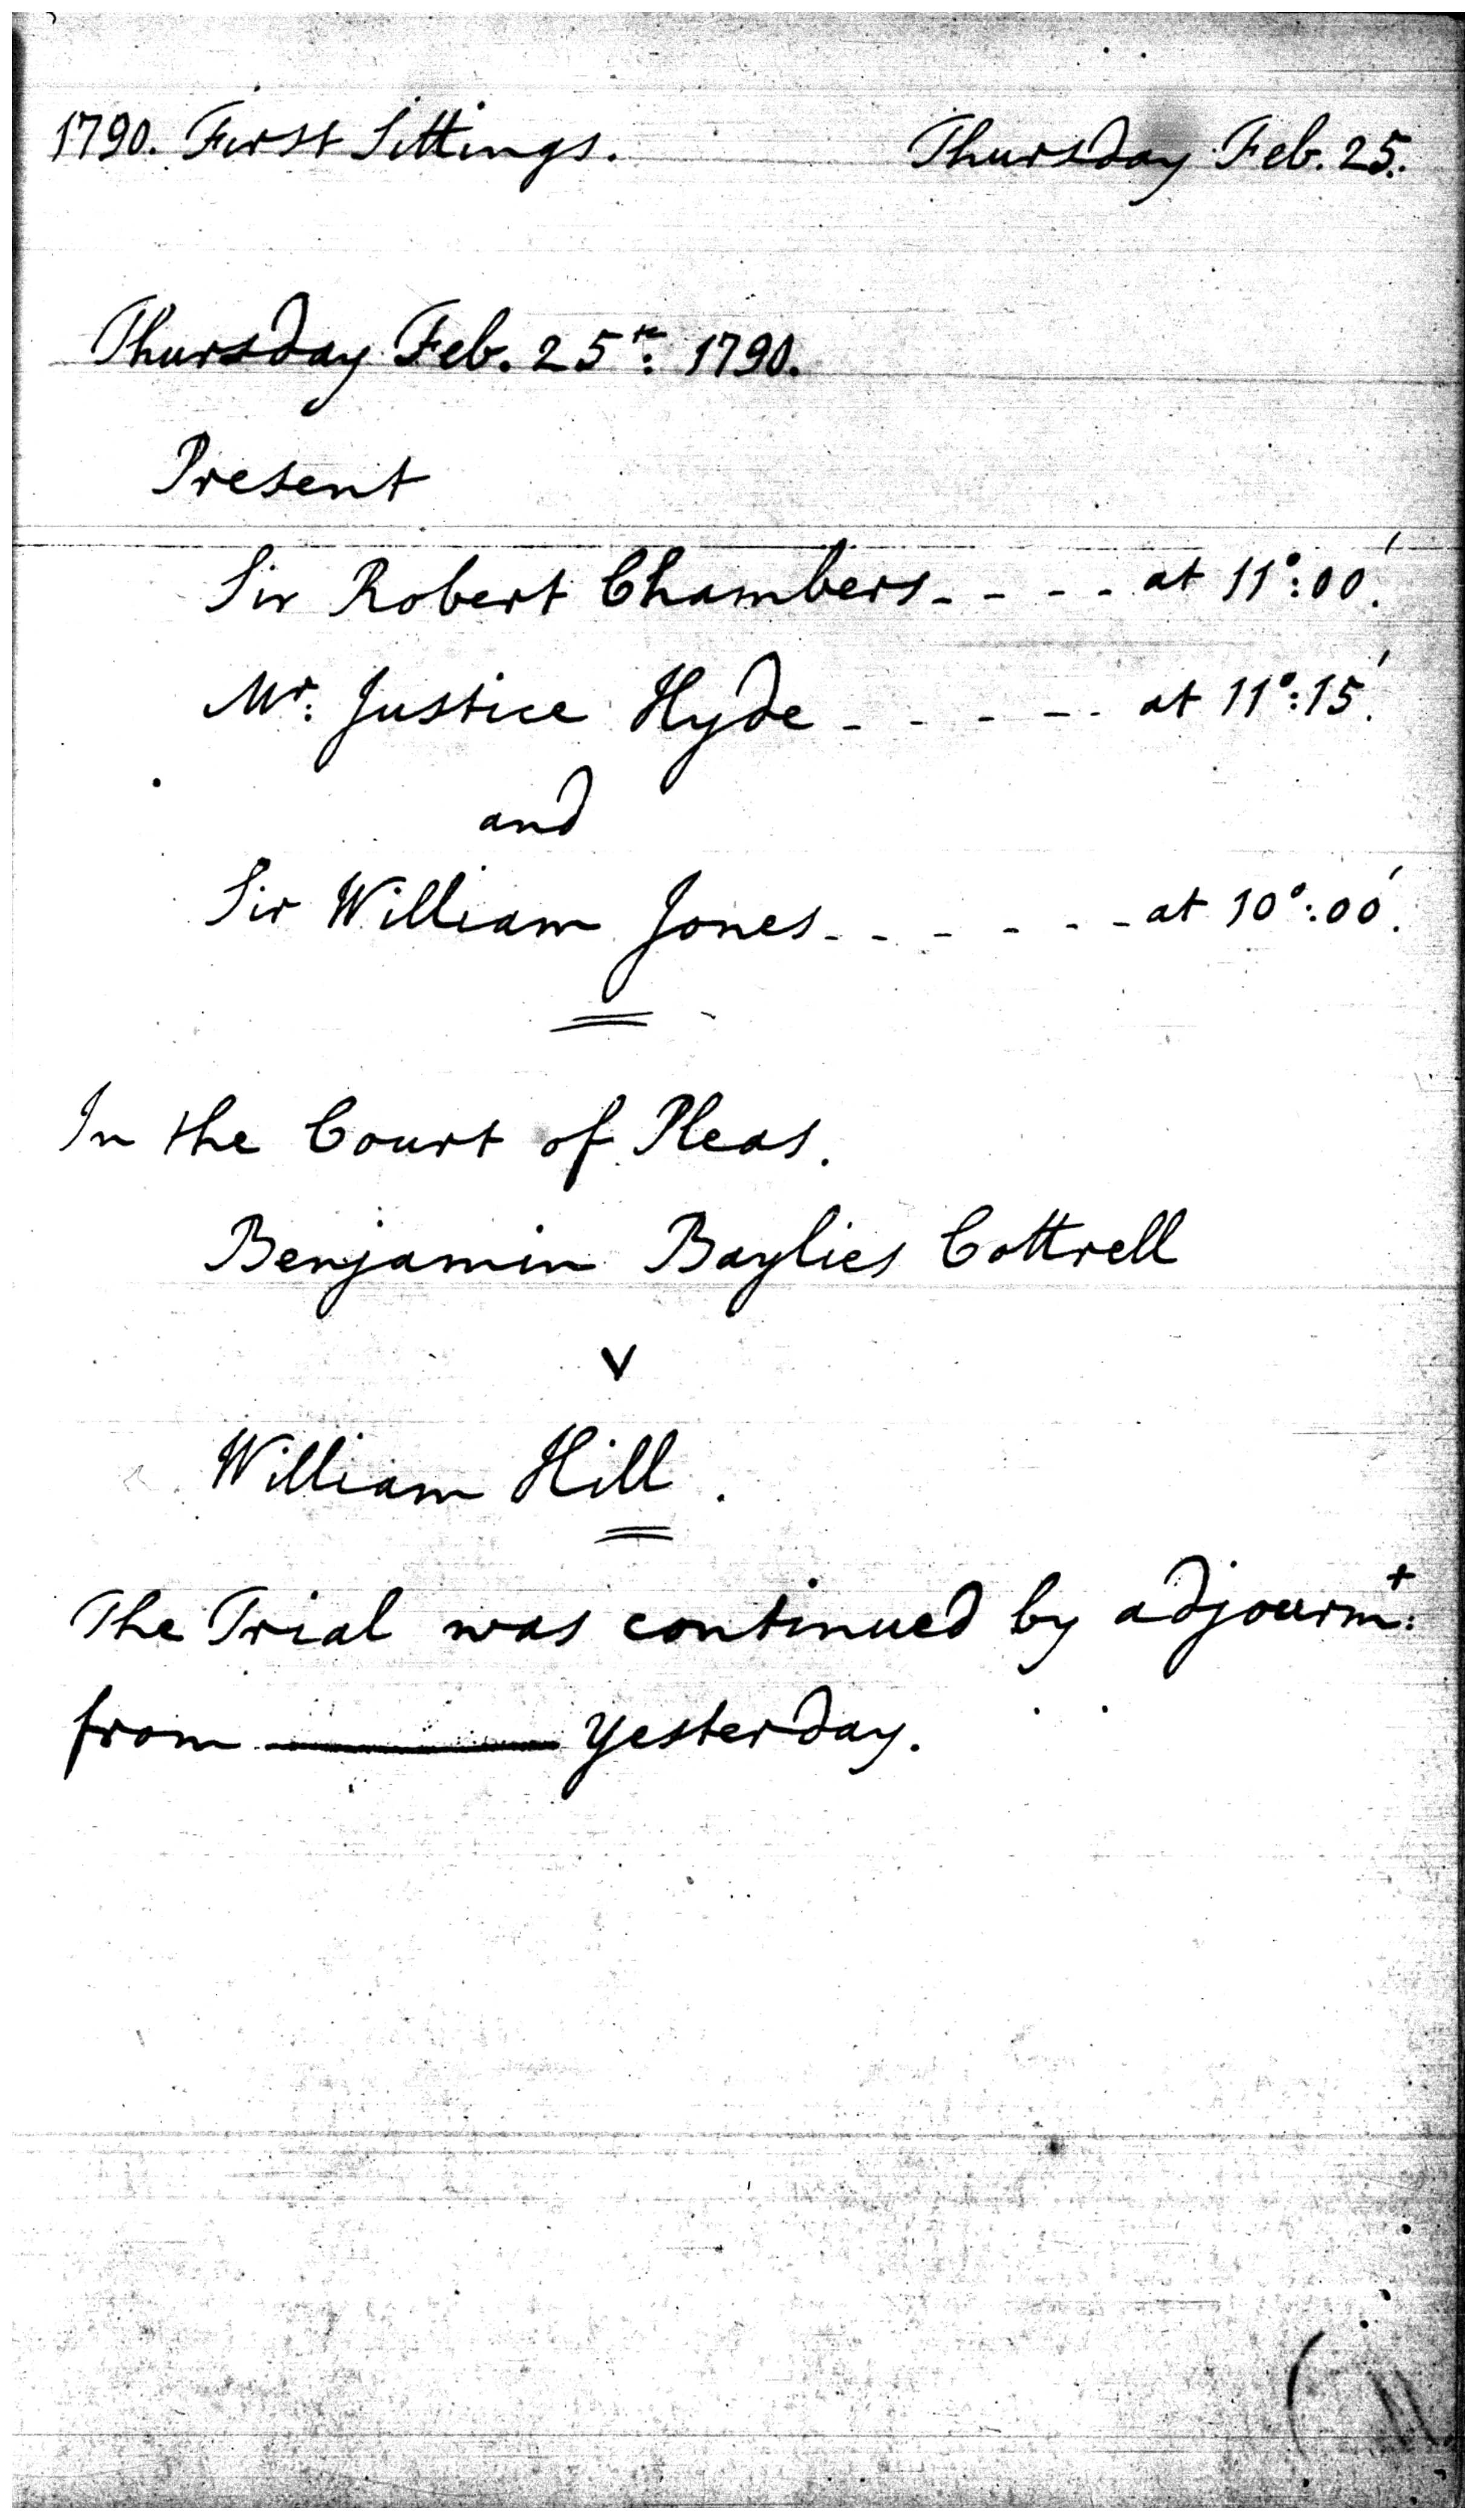 1790. First Sittings. Thursday Feb. 25.
Thursday Feb. 25th: 1790.
Present
Sir Robert Chambers - - - - at 11°:00'.
Mr: Justice Hyde - - - - - at 11°:15'.
and
Sir William Jones - - - - - - - at 10°:00'.
In the Court of Pleas.
Benjamin Baylies Cottrell
v
William Hill.
The Trial was continued by adjournmt:
from yesterday.